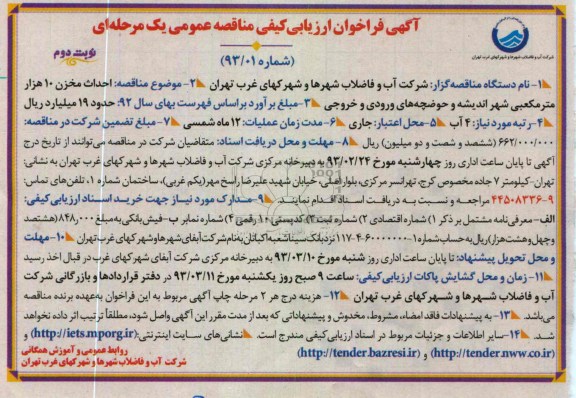 آگهی فراخوان ارزیابی‌کیفی مناقصه عمومی یک مرحله‌ای
(شماره ۹۳/۰۱)
نوبت دوم
شرکت آب و فاضلاب شهرها و شهرکهای غرب تهران
۱- نام دستگاه مناقصه‌گزار: شرکت آب و فاضلاب شهرها و شهرکهای غرب تهران ۲- موضوع مناقصه: احداث مخزن ۱۰ هزار
مترمکعبی شهر اندیشه و حوضچه‌های ورودی و خروجی ۳- مبلغ برآورد براساس فهرست بهای سال ۹۲: حدود ۱۹ میلیارد ریال
۴- رتبه مورد نیاز: ۴ آب ۵- محل اعتبار: جاری ۶- مدت زمان عملیات: ۱۲ ماه شمسی ۷- مبلغ تضمین شرکت در مناقصه:
۶۶۲/۰۰۰/۰۰۰ (ششصد و شصت و دو میلیون) ریال ۸- مهلت و محل دریافت اسناد: متقاضیان شرکت در مناقصه می‌توانند از تاریخ درج
آگهی تا پایان ساعت اداری روز چهارشنبه مورخ ۹۳/۰۲/۲۴ به دبیرخانه مرکزی شرکت آب و فاضلاب شهرها و شهرکهای غرب تهران به نشانی:
تهران- کیلومتر ۷ جاده مخصوص کرج، تهرانسر مرکزی، بلوار اصلی، خیابان شهید علیرضا راسخ مهر (یکم غربی)، ساختمان شماره ۱، تلفن‌های تماس:
۹-۴۴۵۰۸۳۳۶ مراجعه و نسبت به دریافت اسناد اقدام نمایند. ۹- مدارک مورد نیاز جهت خرید اسناد ارزیابی‌کیفی:
الف- معرفی‌نامه مشتمل بر ذکر ۱) شماره اقتصادی ۲) شماره ثبت ۳) کدپستی ۱۰ رقمی ۴) شماره نمابر ب- فیش بانکی به مبلغ ۸۴۸/۰۰۰ (هشتصد
و چهل و هشت هزار) ریال به حساب شماره ۱-۶۰۰۰۰۰۰-۴-۱۱۷ نزد بانک سینا شعبه اکباتان به نام شرکت آبفای شهرها و شهرکهای غرب تهران ۱۰- مهلت
و محل تحویل پیشنهاد: تا پایان ساعت اداری روز شنبه مورخ ۹۳/۰۳/۱۰ به دبیرخانه مرکزی شرکت آبفای شهرها و شهرکهای غرب در قبال اخذ رسید
۱۱- زمان و محل گشایش پاکات ارزیابی‌کیفی: ساعت ۹ صبح روز یکشنبه مورخ ۹۳/۰۳/۱۱ در دفتر قراردادها و بازرگانی شرکت
آب و فاضلاب شهرها و شهرکهای غرب تهران ۱۲- هزینه درج هر ۲ مرحله چاپ آگهی مربوط به این فراخوان به‌عهده برنده مناقصه
می‌باشد. ۱۳- به پیشنهادات فاقد امضاء، مشروط، مخدوش و پیشنهاداتی که بعد از مدت مقرر این آگهی واصل شود، مطلقاً ترتیب اثر داده نخواهد
شد. ۱۴- سایر اطلاعات و جزئیات مربوط در اسناد ارزیابی‌کیفی مندرج است. نشانی‌های سایت اینترنتی: (http://iets.mporg.ir) و
(http://tender.nww.co.ir) و (http://tender.bazresi.ir)
روابط عمومی و آموزش همگانی
شرکت آب و فاضلاب شهرها و شهرکهای غرب تهران